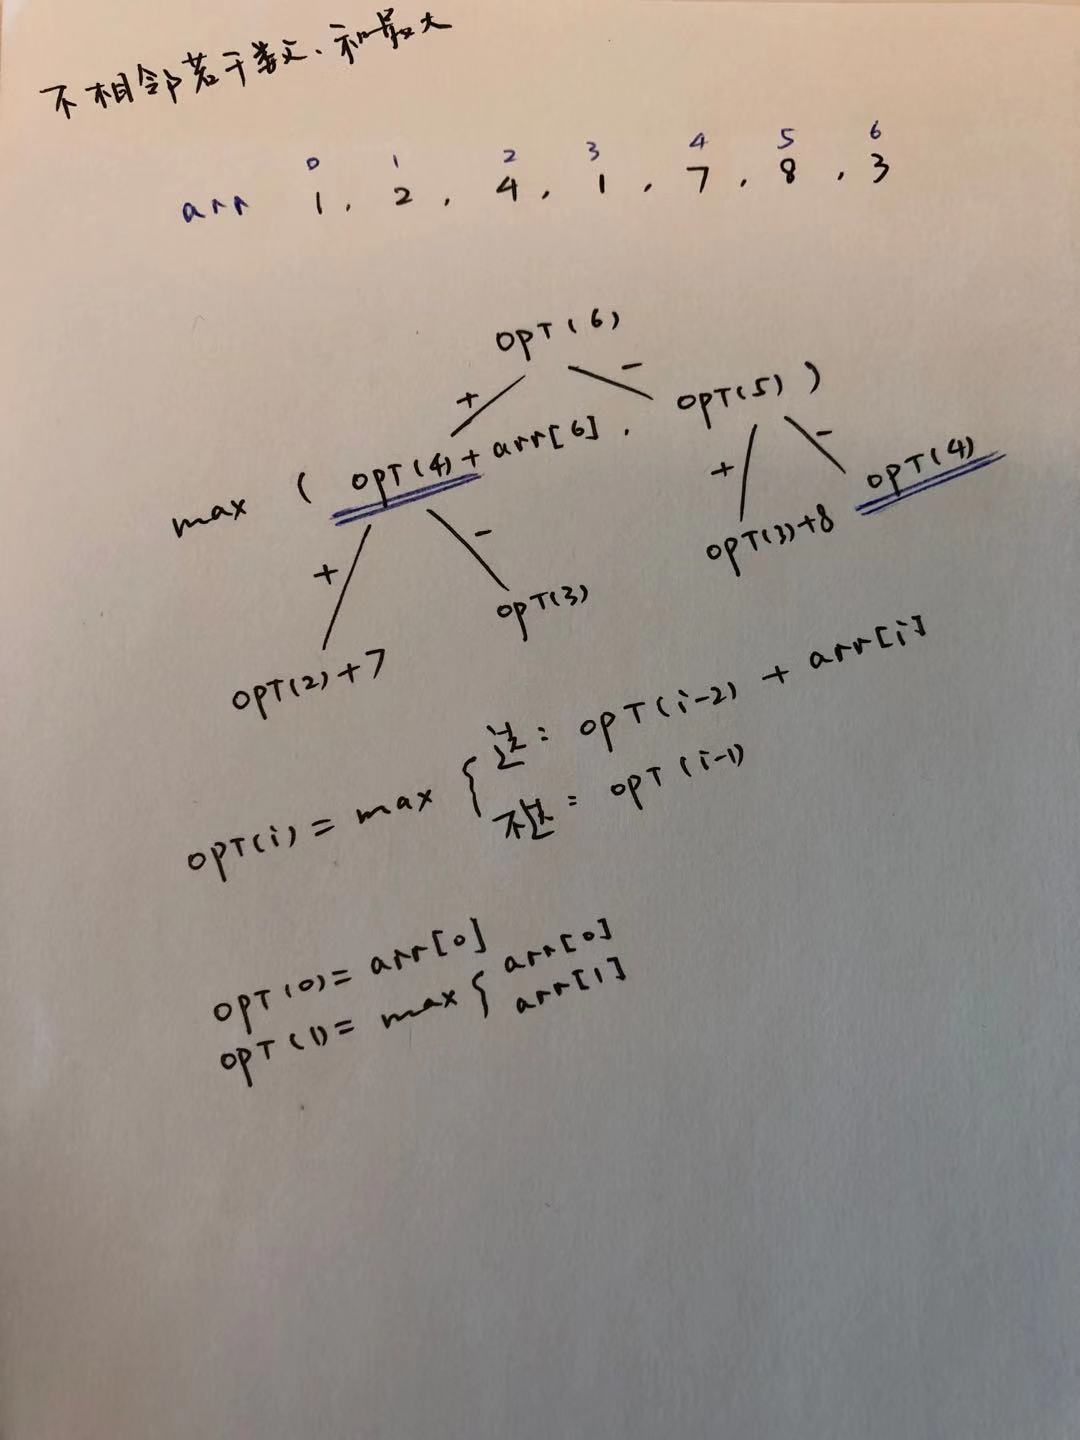 不相邻若干数、和最大
0 1 2 3 4 5 6
arr 1, 2, 4, 1, 7, 8, 3
OPT(6)
+ -
max ( OPT(4)+arr[6], OPT(5) )
+ - + -
OPT(2)+7 OPT(3) OPT(3)+8 OPT(4)
OPT(i) = max { 选: OPT(i-2) + arr[i]
不选: OPT(i-1)
OPT(0) = arr[0]
OPT(1) = max { arr[0]
arr[1]